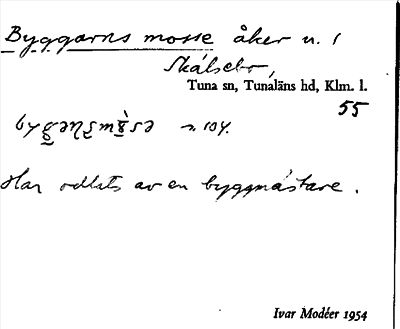 Byggarns mosse åker n. 1
Skälsebo,
Tuna sn, Tunaläns hd, Klm. l.
55
n. 104.
Har odlats av en byggmästare.
Ivar Modéer 1954